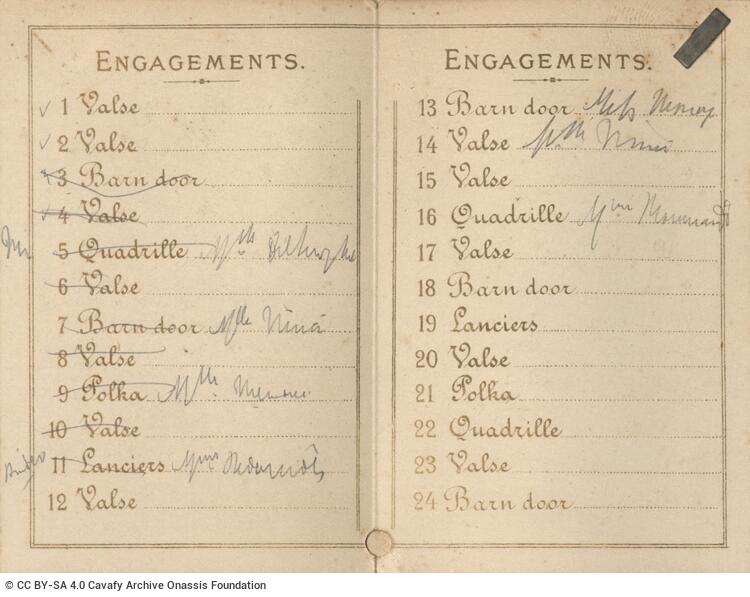 ENGAGEMENTS.
1 Valse
2 Valse
3 Barn door
4 Valse
5 Quadrille Mlle
6 Valse
7 Barn door Mlle Nina
8 Valse
9 Polka Mlle
10 Valse
11 Lanciers Mme
12 Valse
ENGAGEMENTS.
13 Barn door Miss
14 Valse Mlle Nina
15 Valse
16 Quadrille Mme
17 Valse
18 Barn door
19 Lanciers
20 Valse
21 Polka
22 Quadrille
23 Valse
24 Barn door
© CC BY-SA 4.0 Cavafy Archive Onassis Foundation